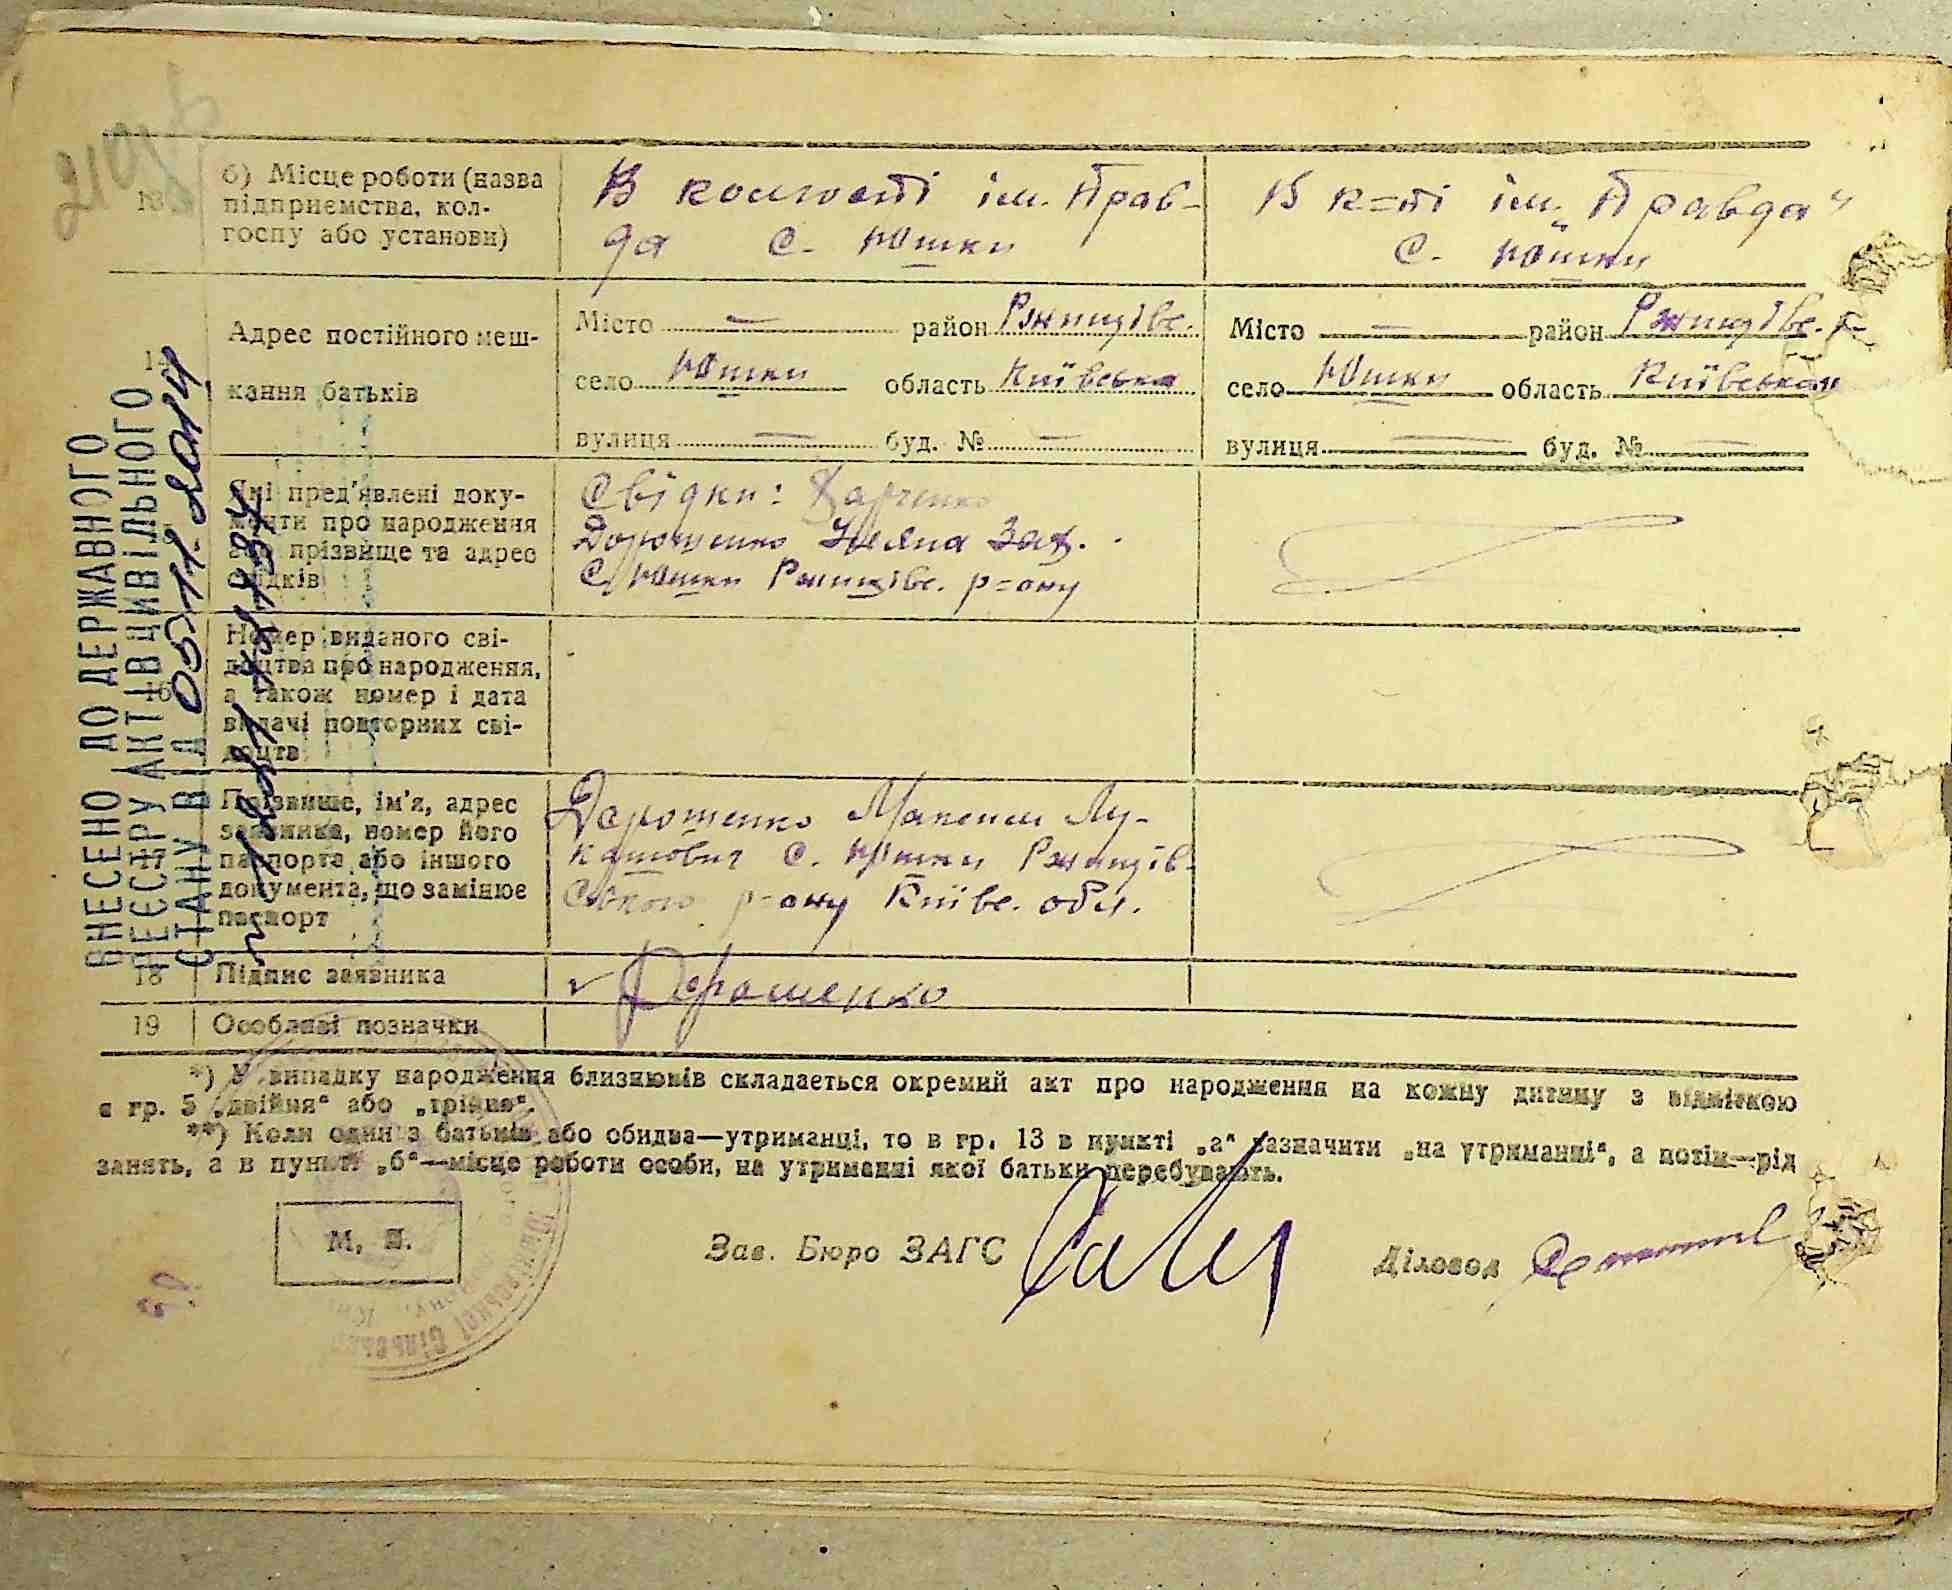 13
б) Місце роботи (назва
підприємства, кол-
госпу або установи)
В колгоспі ім. Прав-
да с. Юшки
В к=пі ім. „Правда"
с. Юшки
14
Адрес постійного меш-
кання батьків
Місто — район Ржищівс.
село Юшки область Київська
вулиця — буд. № —
Місто — район Ржищівс.
село Юшки область Київська
вулиця — буд. № —
Які пред'явлені доку-
менти про народження
або прізвище та адрес
свідків
Свідки: Харченко
Дорошенко Уляна Зах.
с. Юшки Ржищівс. р=ону
16
Номер виданого сві-
доцтва про народження,
а також номер і дата
видачі повторних сві-
доцтв
17
Прізвище, ім'я, адрес
заявника, номер його
паспорта або іншого
документа, що замінює
паспорт
Дорошенко Максим Лу-
кашович с. Юшки Ржищів-
ського р-ону Київс. обл.
18
Підпис заявника
Дорошенко
19
Особливі позначки
*) У випадку народження близнюків складається окремий акт про народження на кожну дитину з відміткою
в гр. 5 „двійня" або „трійня".
**) Коли один з батьків або обидва—утриманці, то в гр. 13 в пункті „а" зазначити „на утриманні", а потім—рід
занять, а в пункті „б"—місце роботи особи, на утриманні якої батьки перебувають.
М. П.
Зав. Бюро ЗАГС
Діловод
ВНЕСЕНО ДО ДЕРЖАВНОГО
РЕЄСТРУ АКТІВ ЦИВІЛЬНОГО
СТАНУ ВІД